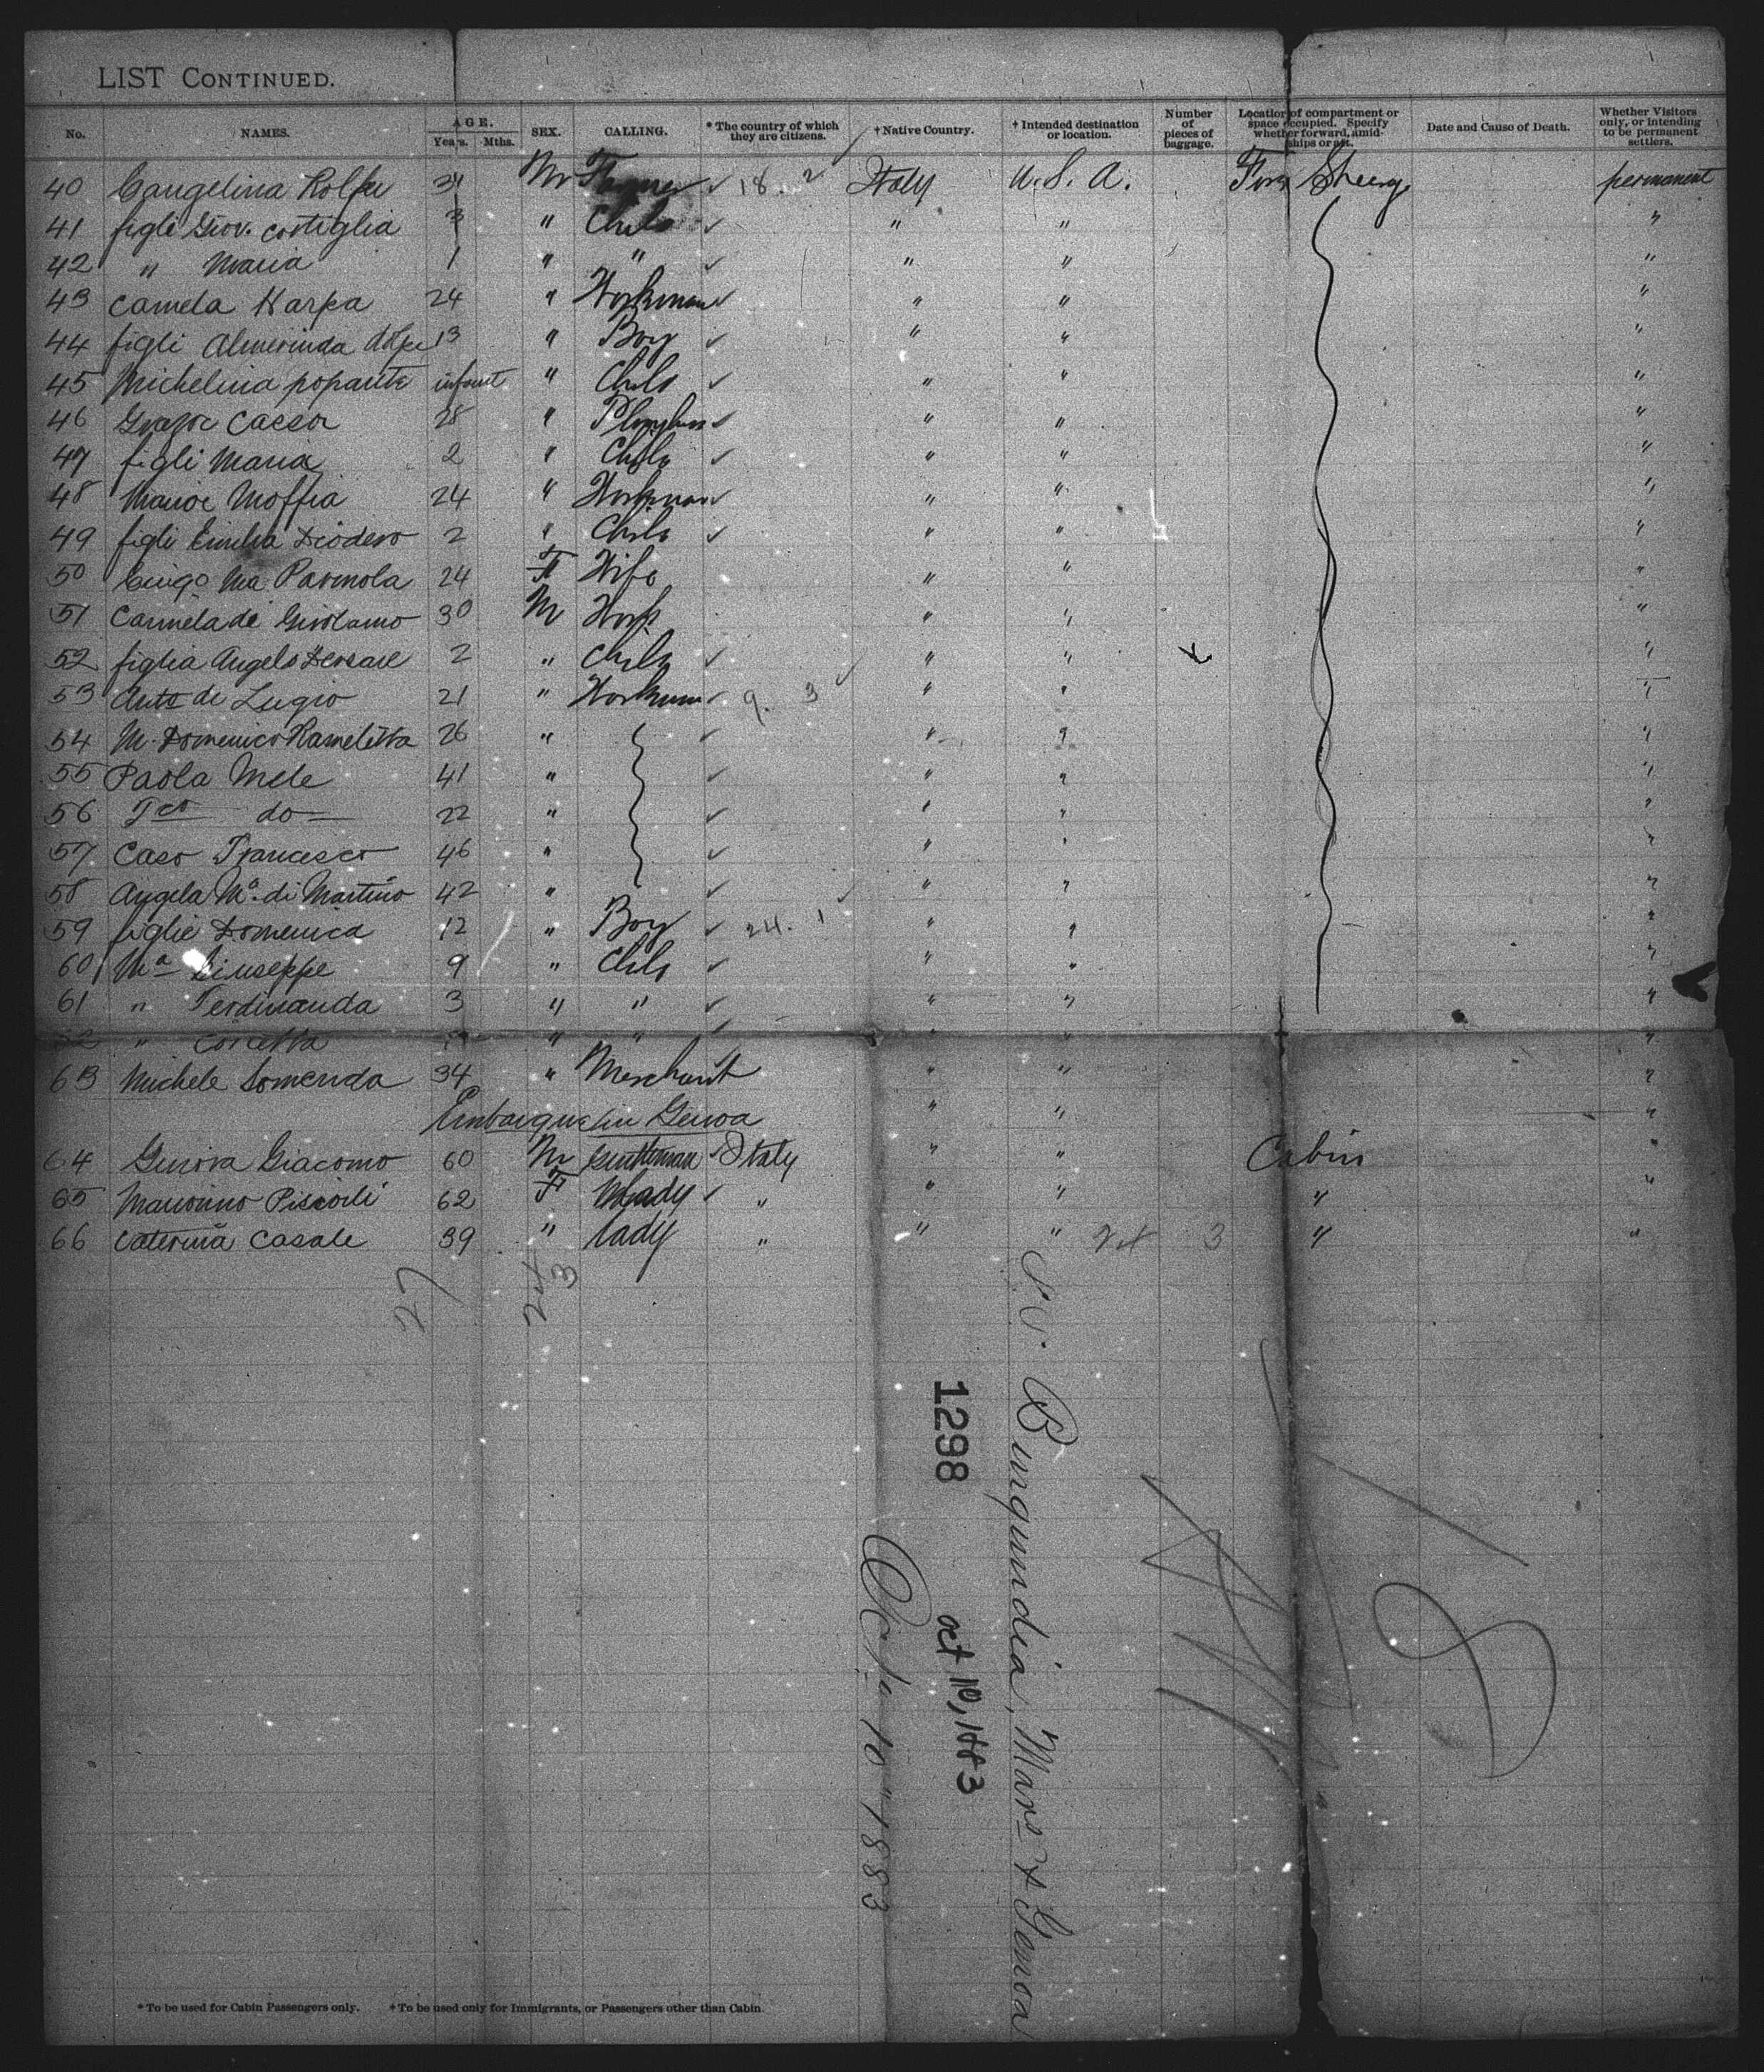 LIST CONTINUED.
No. NAMES. AGE. Years. Mths. SEX. CALLING. * The country of which they are citizens. † Native Country. † Intended destination or location. Number of pieces of baggage. Location of compartment or space occupied. Specify whether forward, amidships or aft. Date and Cause of Death. Whether Visitors only, or intending to be permanent settlers.
40 Cangelina 31 M Farmer 18. 2 Italy U.S.A. Steerage permanent
41 figli Giov. Cortiglia 3 " Child " " "
42 " Maria 1 " " " " "
43 Camela Harpa 24 " Workman " " "
44 figli Almerinda 13 " Boy " " "
45 Michelina popante infant " Child " " "
46 28 " " " "
47 figli Maria 2 " Child " " "
48 Moffia 24 " Workman " " "
49 figli Emilia Diodero 2 " Child " " "
50 Ma Parmola 24 F Wife " " "
51 Carmela de Girolamo 30 M Work " " "
52 figlia Angelo 2 " Child " " "
53 Anto de Lugio 21 " Workman 9. 3 " " "
54 M. Domenico 26 " " " "
55 Paola Mele 41 " " " "
56 do 22 " " " "
57 Caso Francesco 46 " " " "
58 Angela Ma. di Martino 42 " " " "
59 figlie Domenica 12 " Boy 24. 1 " " "
60 Ma Giuseppe 9 " Child " " "
61 " Ferdinanda 3 " " " " "
" " " " " "
63 Michele Somenda 34 " Merchant " " "
Embarque in Genoa " " "
64 Genova Giacomo 60 M Gentleman Italy " " Cabin "
65 62 F lady " " " " "
66 Caterina Casale 39 " lady " " " 24 3 " "
27
24
3
S.S. Burgundia, Mars & Genoa
1298
Oct 10, 1883
Octo. 10" 1883
* To be used for Cabin Passengers only. † To be used only for Immigrants, or Passengers other than Cabin.